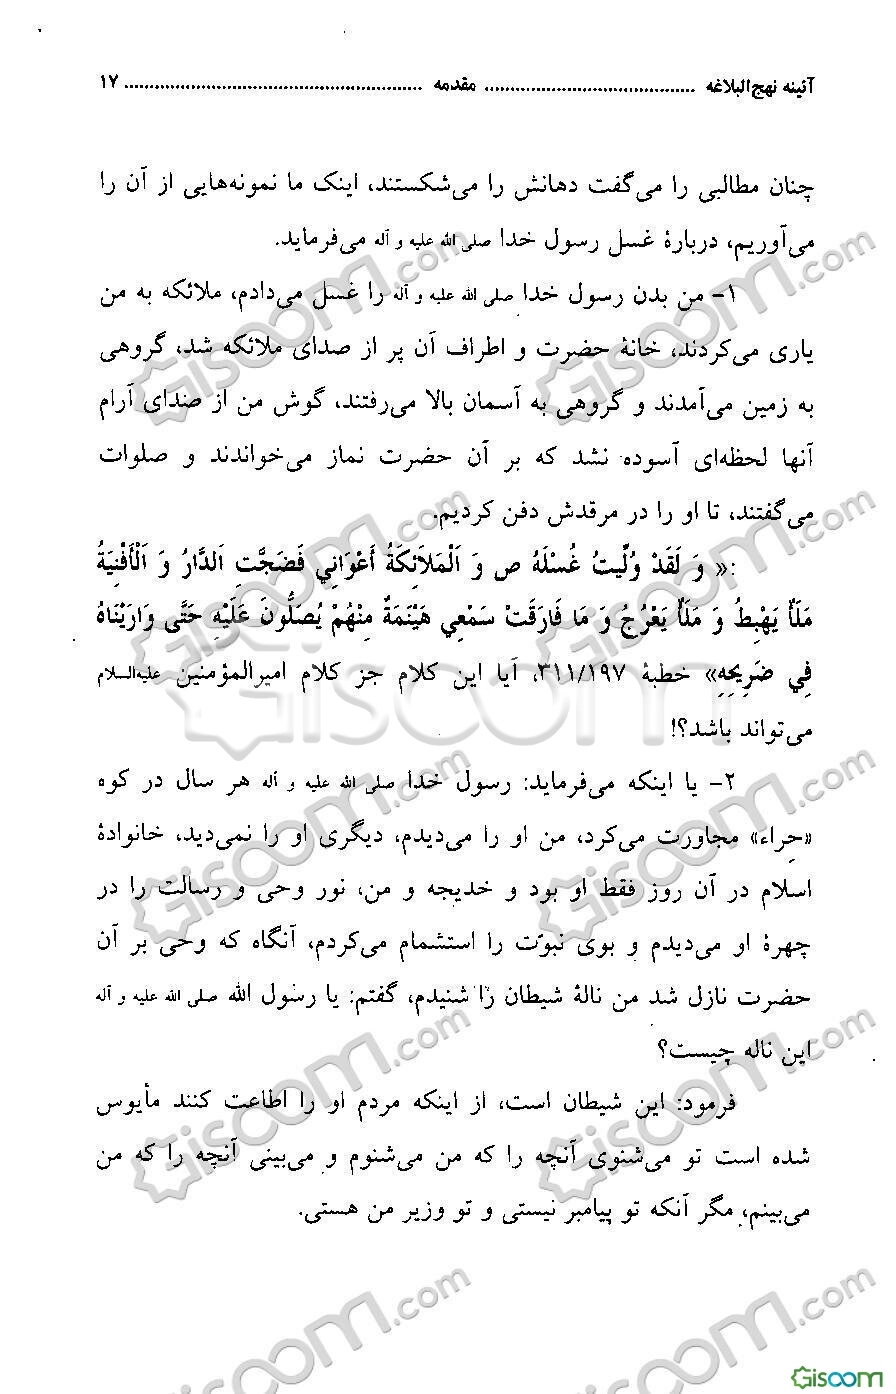 آئینه نهج‌البلاغه ........................................ مقدمه ........................................................ ۱۷
چنان مطالبی را می‌گفت دهانش را می‌شکستند، اینک ما نمونه‌هایی از آن را
می‌آوریم، دربارهٔ غسل رسول خدا صلی الله علیه و آله می‌فرماید.
۱- من بدن رسول خدا صلی الله علیه و آله را غسل می‌دادم، ملائکه به من
یاری می‌کردند، خانهٔ حضرت و اطراف آن پر از صدای ملائکه شد، گروهی
به زمین می‌آمدند و گروهی به آسمان بالا می‌رفتند، گوش من از صدای آرام
آنها لحظه‌ای آسوده نشد که بر آن حضرت نماز می‌خواندند و صلوات
می‌گفتند، تا او را در مرقدش دفن کردیم.
:« وَ لَقَدْ وُلِّيتُ غُسْلَهُ ص وَ اَلْمَلاَئِكَةُ أَعْوَانِي فَضَجَّتِ اَلدَّارُ وَ اَلْأَفْنِيَةُ
مَلَأٌ يَهْبِطُ وَ مَلَأٌ يَعْرُجُ وَ مَا فَارَقَتْ سَمْعِي هَيْنَمَةٌ مِنْهُمْ يُصَلُّونَ عَلَيْهِ حَتَّى وَارَيْنَاهُ
فِي ضَرِيحِهِ» خطبهٔ ۳۱۱/۱۹۷، آیا این کلام جز کلام امیرالمؤمنین علیه‌السلام
می‌تواند باشد؟!
۲- یا اینکه می‌فرماید: رسول خدا صلی الله علیه و آله هر سال در کوه
«حِراء» مجاورت می‌کرد، من او را می‌دیدم، دیگری او را نمی‌دید، خانوادهٔ
اسلام در آن روز فقط او بود و خدیجه و من، نور وحی و رسالت را در
چهرهٔ او می‌دیدم و بوی نبوّت را استشمام می‌کردم، آنگاه که وحی بر آن
حضرت نازل شد من نالهٔ شیطان را شنیدم، گفتم: یا رسول الله صلی الله علیه و آله
این ناله چیست؟
فرمود: این شیطان است، از اینکه مردم او را اطاعت کنند مأیوس
شده است تو می‌شنوی آنچه را که من می‌شنوم و می‌بینی آنچه را که من
می‌بینم، مگر آنکه تو پیامبر نیستی و تو وزیر من هستی.
Gisoom